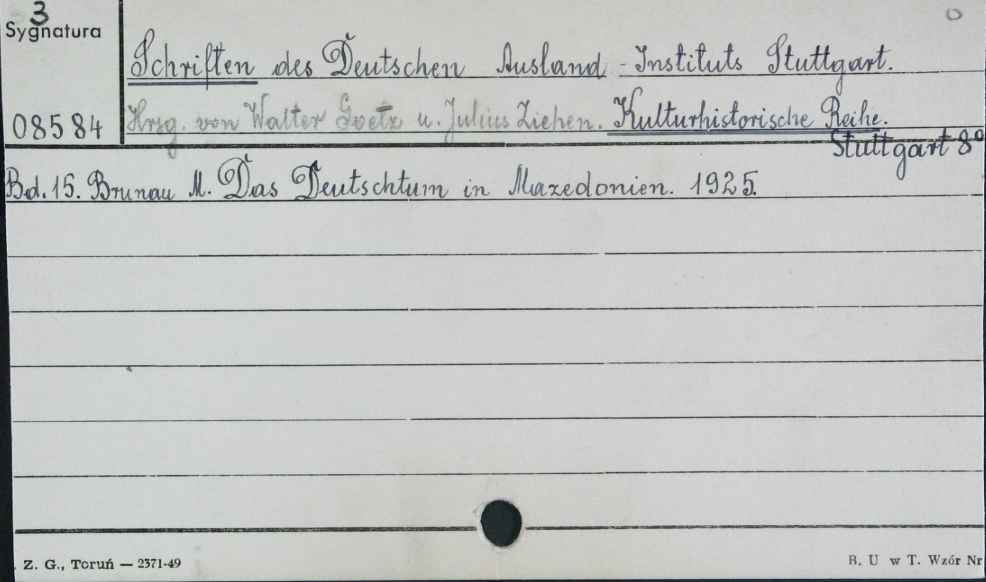 3
Sygnatura
Schriften des Deutschen Ausland-Instituts Stuttgart.
08584
Hrsg. von Walter Goetz u. Julius Ziehen. Kulturhistorische Reihe.
Stuttgart 8º
Bd. 15. Brunau M. Das Deutschtum in Mazedonien. 1925.
Z. G., Toruń — 2371-49
B. U w T. Wzór Nr